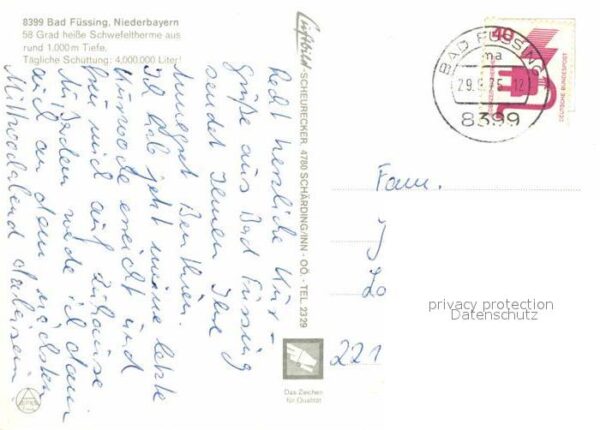 8399 Bad Füssing, Niederbayern
58 Grad heiße Schwefeltherme aus
rund 1.000 m Tiefe.
Tägliche Schüttung: 4,000.000 Liter!
Recht herzliche Kur-
grüße aus Bad Füssing
sendet Ihnen Ihre
Annegret
Ich hab jetzt meine letzte
Kurwoche erreicht und
freu mich auf Zuhause
Außerdem werde ich dann
auch an dem nächsten
Mittwochabend dabeisein.
Luftbild-SCHEURECKER, 4780 SCHÄRDING/INN - OÖ. - TEL. 2329
Das Zeichen
für Qualität
BAD FÜSSING
ma
75 12
8399
40
DEUTSCHE BUNDESPOST
Fam.
J
Lo
221
privacy protection
Datenschutz